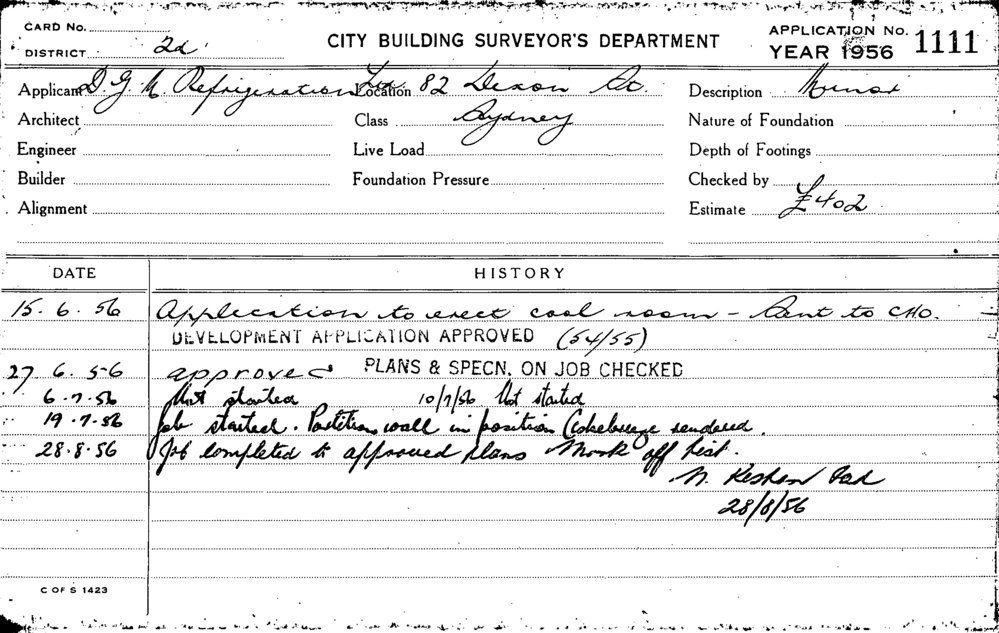 CARD No.
DISTRICT 2d
CITY BUILDING SURVEYOR'S DEPARTMENT
APPLICATION No. 1111
YEAR 1956
Applicant D.G.M Refrigeration Ltd Location 82 Dixon St. Description Minor
Architect Class Sydney Nature of Foundation
Engineer Live Load Depth of Footings
Builder Foundation Pressure Checked by
Alignment Estimate £402
DATE HISTORY
15. 6. 56 Application to erect cool room - Sent to CHO.
DEVELOPMENT APPLICATION APPROVED (54/55)
27 6. 56 approved PLANS & SPECN. ON JOB CHECKED
6.7.56 Not started 10/7/56 Not started
19.7.56 Job started. Partition wall in position Cokebreeze rendered.
28.8.56 Job completed to approved plans Mark off list.
N.
28/8/56
C OF S 1423